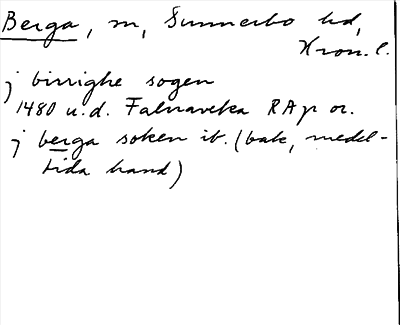 Berga, m, Sunnerbo hd,
Kron. l.
j birrighe sogen
1480 u.d. Falnaveka RAp or.
j berga soken ib. (bak, medel-
tida hand)